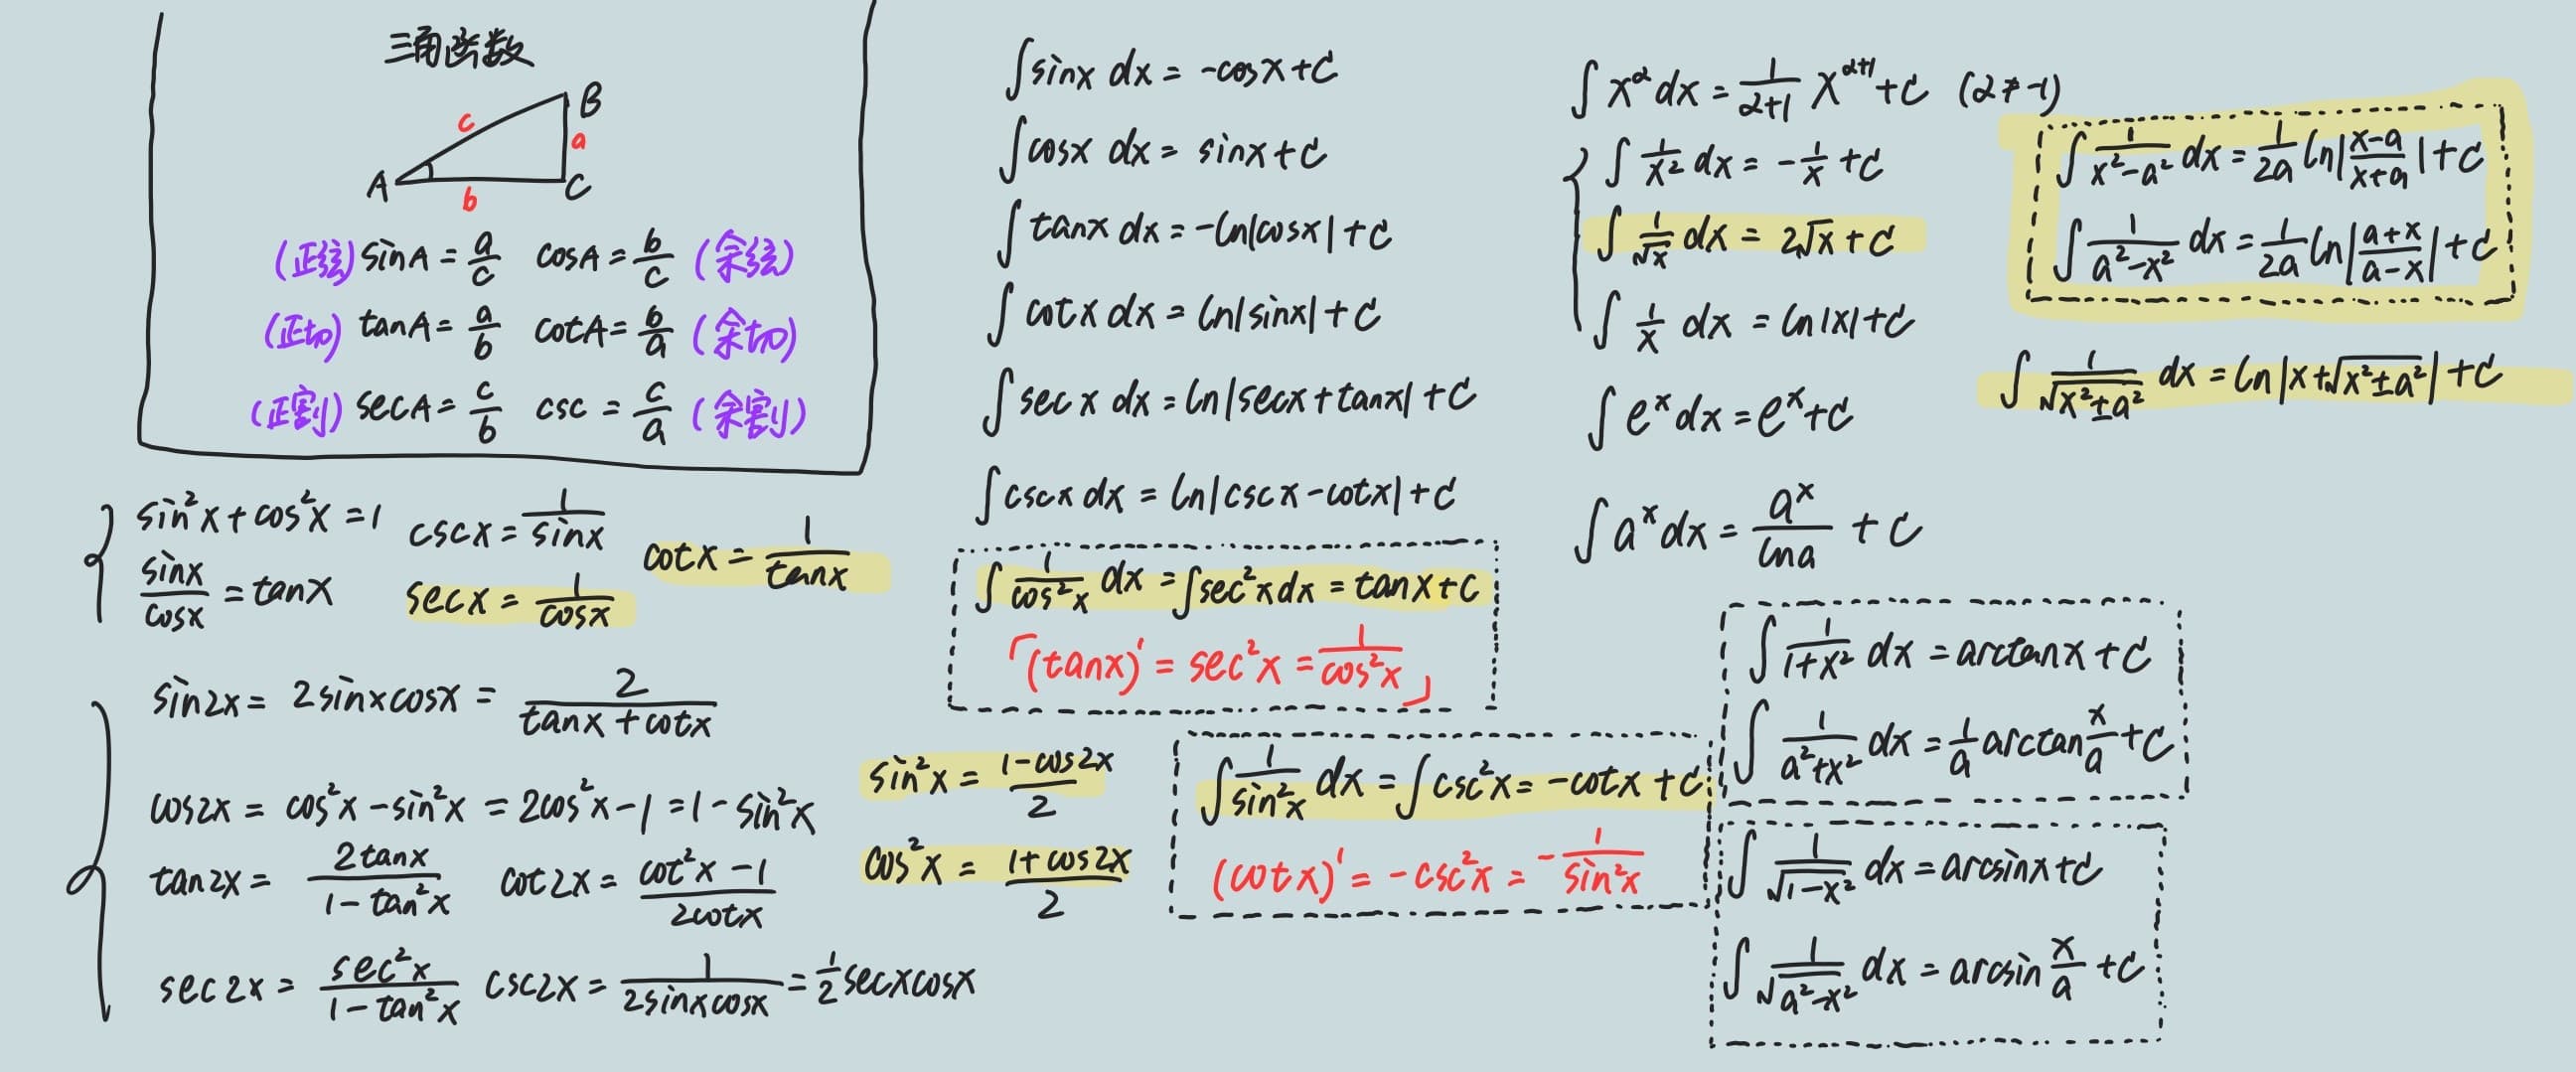 三角函数
B
c
a
A
b
C
(正弦) sinA = a/c cosA = b/c (余弦)
(正切) tanA = a/b cotA = b/a (余切)
(正割) secA = c/b csc = c/a (余割)
sin²x + cos²x = 1 cscx = 1/sinx cotx = 1/tanx
sinx/cosx = tanx secx = 1/cosx
sin2x = 2sinxcosx = 2/(tanx + cotx)
cos2x = cos²x - sin²x = 2cos²x - 1 = 1 - sin²x
tan2x = 2tanx/(1 - tan²x) cot2x = (cot²x - 1)/2cotx
sec2x = sec²x/(1 - tan²x) csc2x = 1/(2sinxcosx) = 1/2 secxcosx
sin²x = (1 - cos2x)/2
cos²x = (1 + cos2x)/2
∫sinx dx = -cosx + C
∫cosx dx = sinx + C
∫tanx dx = -ln|cosx| + C
∫cotx dx = ln|sinx| + C
∫secx dx = ln|secx + tanx| + C
∫cscx dx = ln|cscx - cotx| + C
∫1/cos²x dx = ∫sec²x dx = tanx + C
「(tanx)' = sec²x = 1/cos²x」
∫1/sin²x dx = ∫csc²x = -cotx + C
(cotx)' = -csc²x = -1/sin²x
∫x^α dx = 1/(α+1) x^(α+1) + C (α ≠ -1)
∫1/x² dx = -1/x + C
∫1/√x dx = 2√x + C
∫1/x dx = ln|x| + C
∫e^x dx = e^x + C
∫a^x dx = a^x/lna + C
∫1/(1+x²) dx = arctanx + C
∫1/(a²+x²) dx = 1/a arctan x/a + C
∫1/√(1-x²) dx = arcsinx + C
∫1/√(a²-x²) dx = arcsin x/a + C
∫1/(x²-a²) dx = 1/2a ln|(x-a)/(x+a)| + C
∫1/(a²-x²) dx = 1/2a ln|(a+x)/(a-x)| + C
∫1/√(x²±a²) dx = ln|x+√(x²±a²)| + C